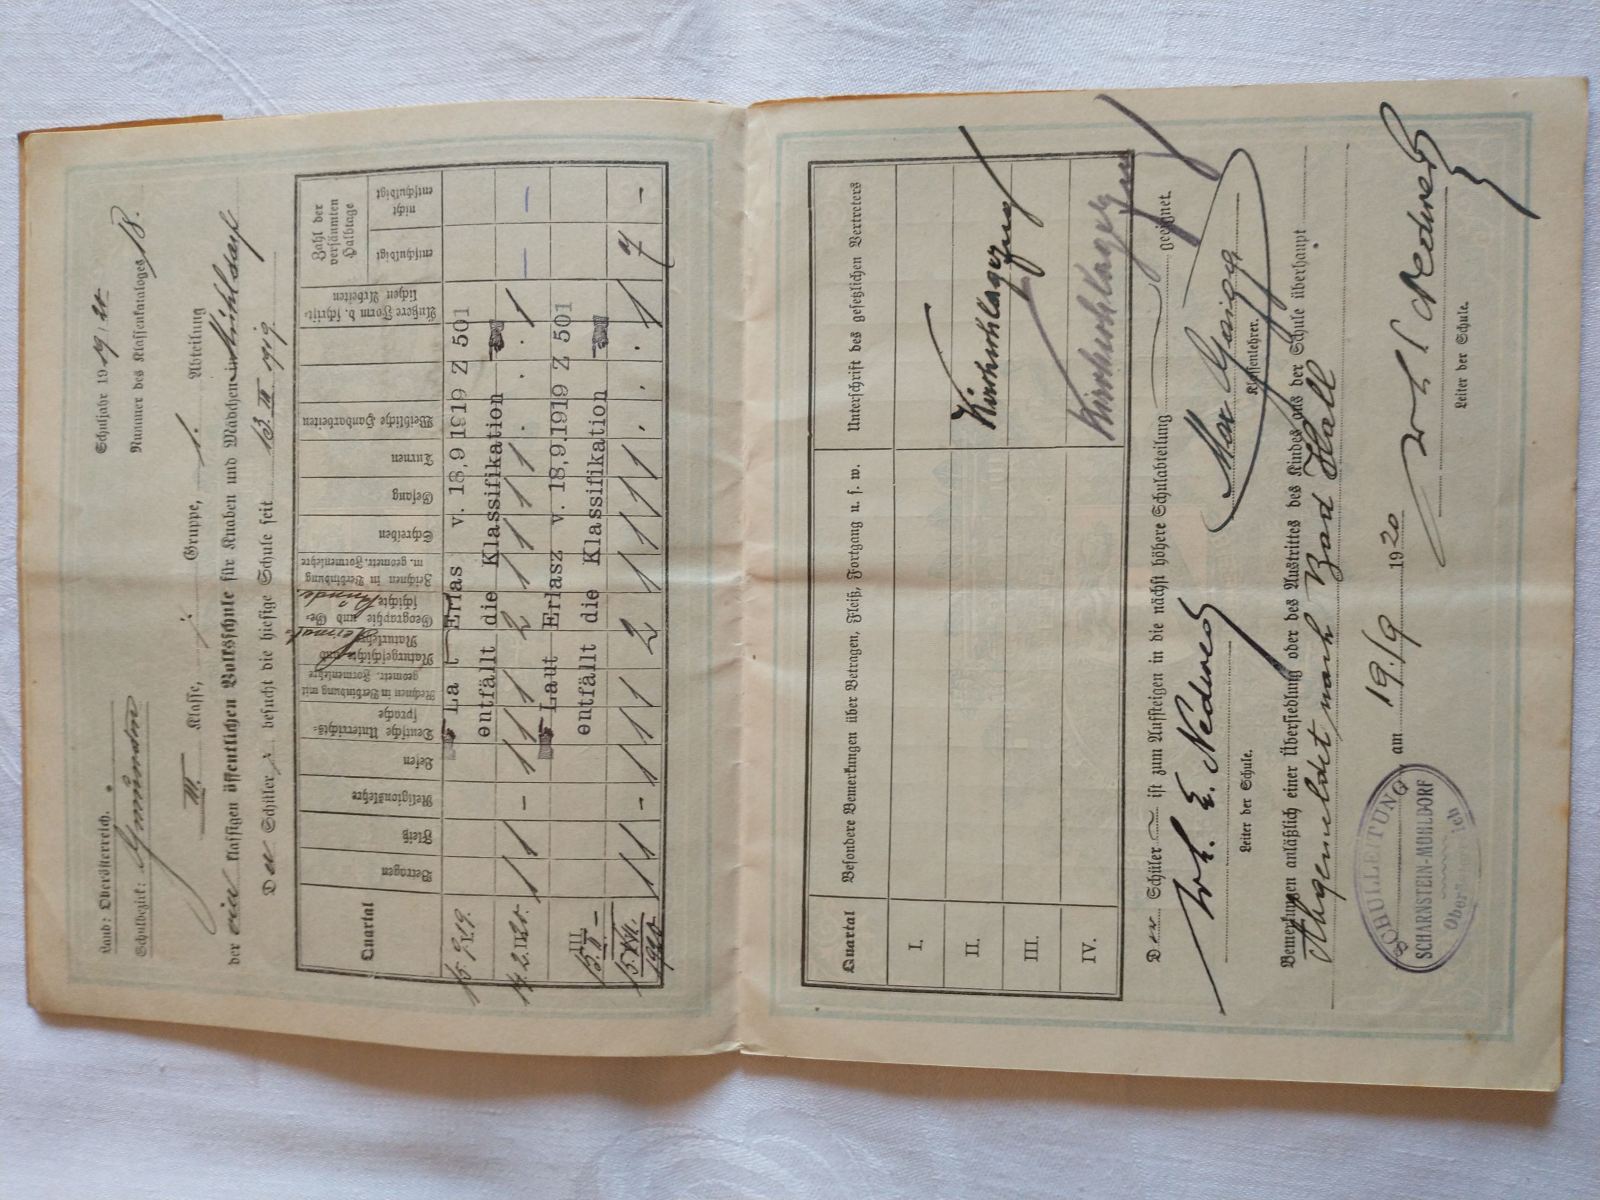 Land: Oberösterreich.
Schuljahr 1919/20
Schulbezirk: Gmunden
Nummer des Klassenkataloges 18.
III. Klasse, Gruppe, 1. Abteilung
der vier klassigen öffentlichen Volksschule für Knaben und Mädchen in Mühldorf
Der Schüler besucht die hiesige Schule seit 13. III. 1919.
Quartal
Betragen
Fleiß
Religionslehre
Lesen
Deutsche Unterrichts-
sprache
Rechnen in Verbindung mit
geometr. Formenlehre
Naturgeschichte und
Naturlehre
Heimat-
Geographie und Ge-
schichte kunde
Zeichnen in Verbindung
m. geometr. Formenlehre
Schreiben
Gesang
Turnen
Weibliche Handarbeiten
Äußere Form d. schrift-
lichen Arbeiten
Zahl der
versäumten
Halbtage
entschuldigt
nicht
entschuldigt
Erlas v. 18,9 1919 Z 501
entfällt die Klassifikation
1 1 - 1 1 1 2 1 1 1 1 . . 1 — —
Laut Erlasz v. 18.9.1919 Z 501
entfällt die Klassifikation
1920
1 1 - 1 1 1 2 1 1 1 1 . . . 1 7 -
Quartal
Besondere Bemerkungen über Betragen, Fleiß, Fortgang u. s. w.
Unterschrift des gesetzlichen Vertreters
I.
II.
III.
IV.
Der Schüler ist zum Aufsteigen in die nächst höhere Schulabteilung geeignet.
E. Nedwed
Leiter der Schule.
Klassenlehrer.
Bemerkungen anläßlich einer Übersiedlung oder des Austrittes des Kindes aus der Schule überhaupt
Abgemeldet nach Bad Hall
SCHULLEITUNG
SCHARNSTEIN-MÜHLDORF
Oberösterreich
am 19./9 1920
Nedwed
Leiter der Schule.